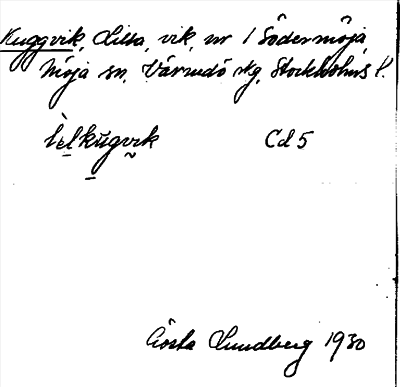 Kuggvik, Lilla, vik, nr 1 Södermöja,
Möja sn, Värmdö skg, Stockholms l.
lèlkugvik Cd 5
Gösta Lundberg 1930